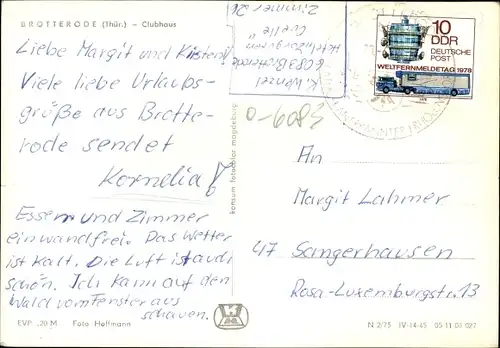 BROTTERODE (Thür.) – Clubhaus
Liebe Margit und
Viele liebe Urlaubs-
grüße aus Brotte-
rode sendet
Kornelia
Essen und Zimmer
einwandfrei. Das Wetter
ist kalt. Die Luft ist auch
schön. Ich kann auf den
Wald vom Fenster aus
schauen.
EVP -,20 M Foto Hoffmann
K. Wenzel
6083 Brotterode
Zimmer 26
0-6083
konsum fotocolor magdeburg
10
DDR
DEUTSCHE
POST
WELTFERNMELDETAG 1978
An
Margit Lahmer
47 Sangerhausen
Rosa-Luxemburgstr. 13
N 2/75 IV-14-45 05 11 03 027